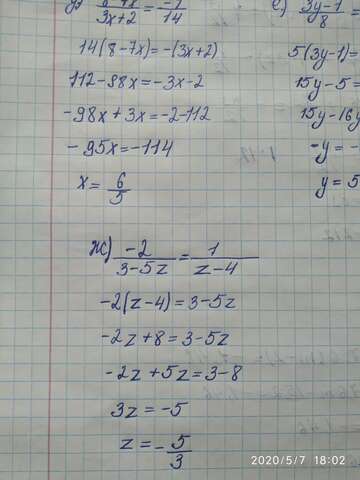 14(8-7x)=-(3x+2)
112-98x=-3x-2
-98x+3x=-2-112
-95x=-114
x=6/5
3y-1
8
5(3y-1)=
15y-5=
15y-16y
-y=-
y=5
ж) -2/(3-5z)=1/(z-4)
-2(z-4)=3-5z
-2z+8=3-5z
-2z+5z=3-8
3z=-5
z=-5/3
2020/5/7 18:02